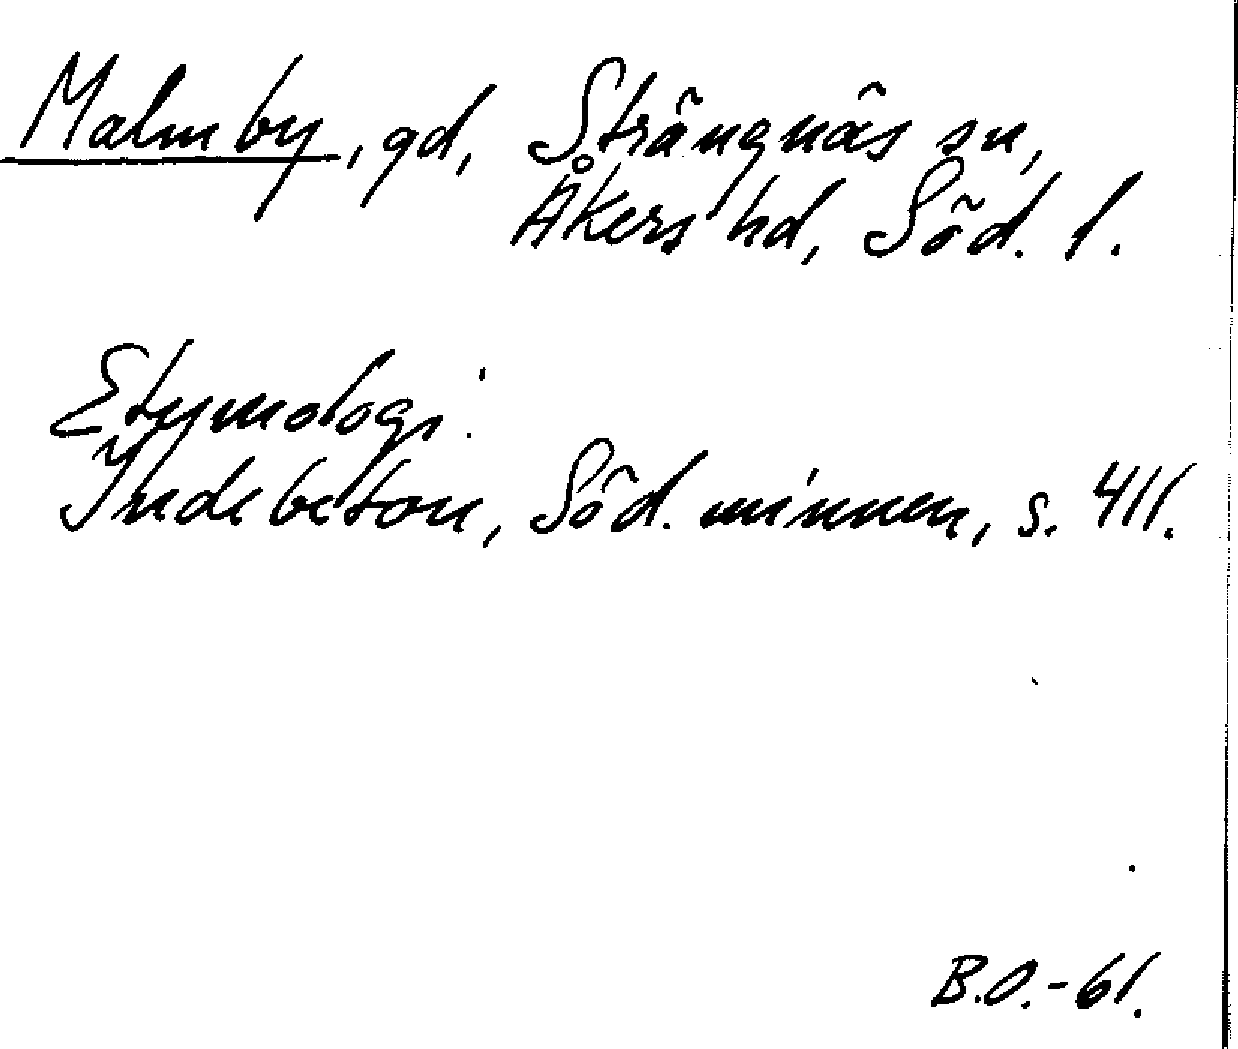 Malmby, gd, Strängnäs sn,
Åkers hd, Söd. l.
Etymologi:
Indebetou, Söd. minnen, s. 411.
B.O.-61.